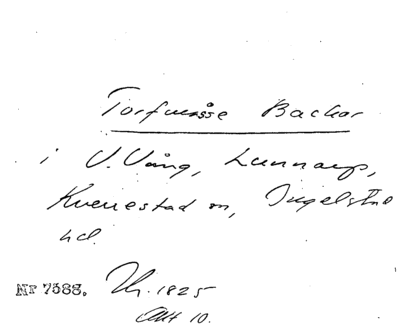 Torfmosse Backar
i V. Vång, Lunnarp,
Kverrestad sn, Ingelstad
hd.
Nr 7388. Th. 1825
Akt 10.